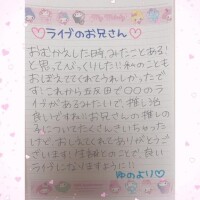 ♡ライブのお兄さん♡
おむかえした時、みたことある!
と思ってびっくりした!! 私のことも
おぼえててくれてうれしかったで
す! これから五反田で〇〇のラ
イブがあるみたいで、推し活
良いですね!! お兄さんの推しの
子についてたくさんきいちゃったけ
ど、おしえてくれてありがとうご
ざいます!
とのことで、良い
ライブになりますように!!
ゆのより♡